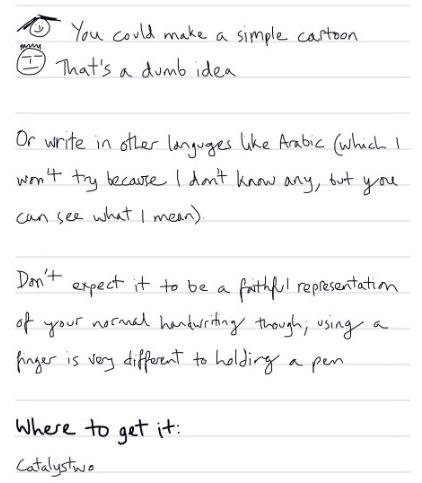 You could make a simple cartoon
That's a dumb idea
Or write in other languges like Arabic (which I
won't try because I don't know any, but you
can see what I mean).
Don't expect it to be a faithful representation
of your normal handwriting though, using a
finger is very different to holding a pen
Where to get it:
Catalystwo